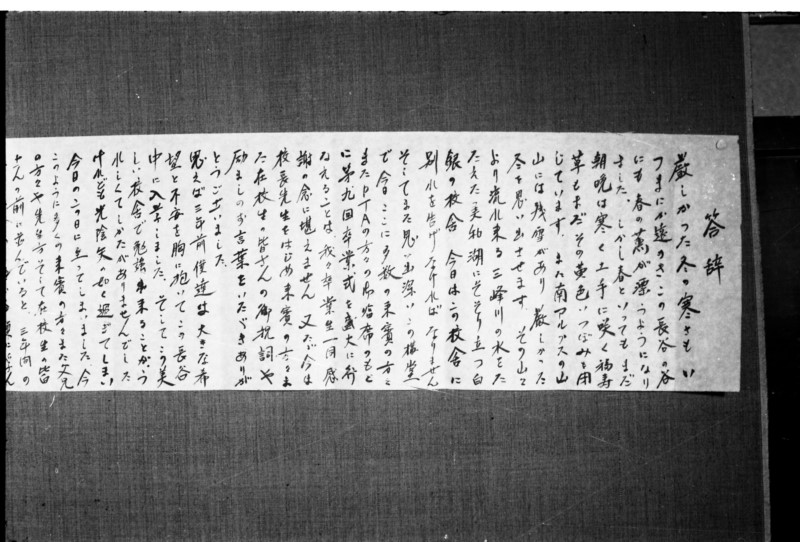 答辞
厳しかった冬の寒さもい
つまにか遠のきこの長谷の谷
にも春の薫が漂うようになり
ました。しかし春といってもまだ
朝晩は寒く土手に咲く福寿
草もまだその黄色いつぼみを閉
じています。また南アルプスの山
山には残雪があり厳しかった
冬を思い出させます。その山々
より流れ来る三峰川の水をた
たえた美和湖にそそり立つ白
銀の校舎 今日はこの校舎に
別れを告げなければなりません
そしてまた思い出深いこの講堂
で今日ここに多数の来賓の方々
またPTAの方々の御臨席のもと
に第九回卒業式を盛大に行
なえることは我々卒業生一同感
謝の念に堪えません 又だ今は
校長先生をはじめ来賓の方々ま
た在校生の皆さんの御祝詞や
励ましのお言葉をいただきありが
とうございました。
思えば三年前僕達は大きな希
望と不安を胸に抱いてこの長谷
中に入学しました。そしてこの美
しい校舎で勉強出来ることがう
れしくてしかたがありませんでした
けれども光陰矢の如く過ぎてしまい
今日のこの日に立ってしまいました 今
このように多くの来賓の方々また父兄
の方々や先生方そして在校生の皆
さんの前に並んでいると 三年間の